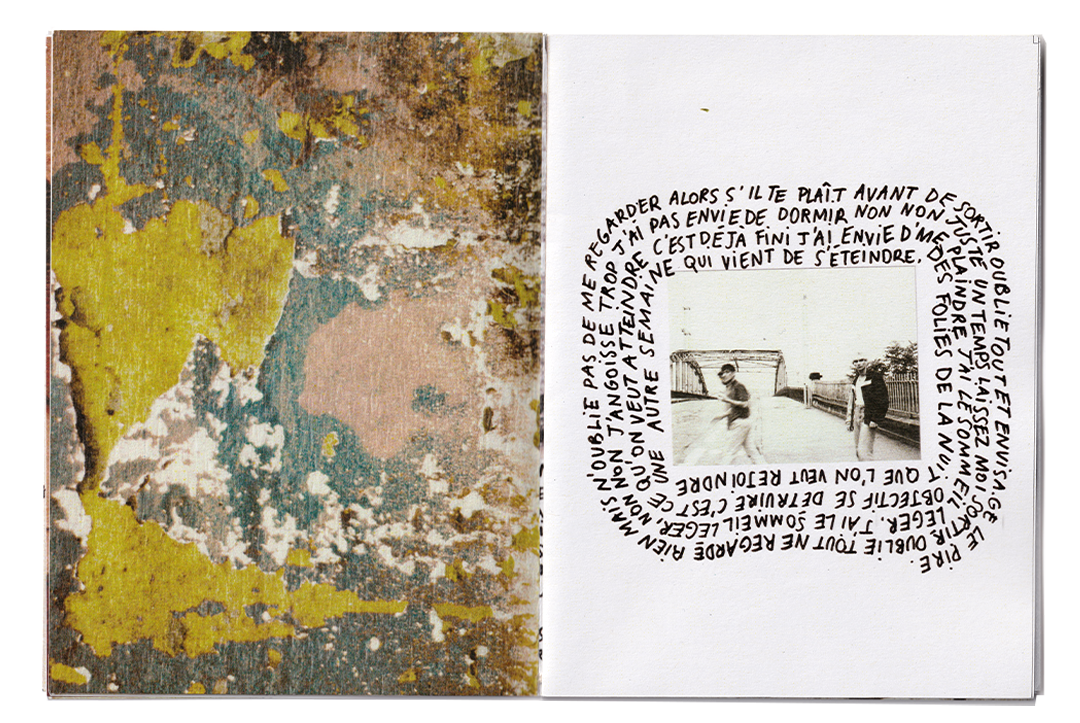 UNE AUTRE SEMAINE QUI VIENT DE S'ÉTEINDRE, DES FOLIES DE LA NUIT QUE L'ON VEUT REJOINDRE
L'OBJECTIF SE DÉTRUIRE C'EST CE QU'ON VEUT ATTEINDRE C'EST DÉJA FINI J'AI ENVIE D'ME PLAINDRE J'AI LE SOMMEIL LEGER, J'AI LE SOMMEIL LEGER,
NON NON J'ANGOISSE TROP J'AI PAS ENVIE DE DORMIR NON NON JUSTE UN TEMPS, LAISSEZ MOI SORTIR, OUBLIE TOUT NE REGARDE RIEN
MAIS N'OUBLIE PAS DE ME REGARDER ALORS S'IL TE PLAÎT AVANT DE SORTIR OUBLIE TOUT ET ENVISAGE LE PIRE.